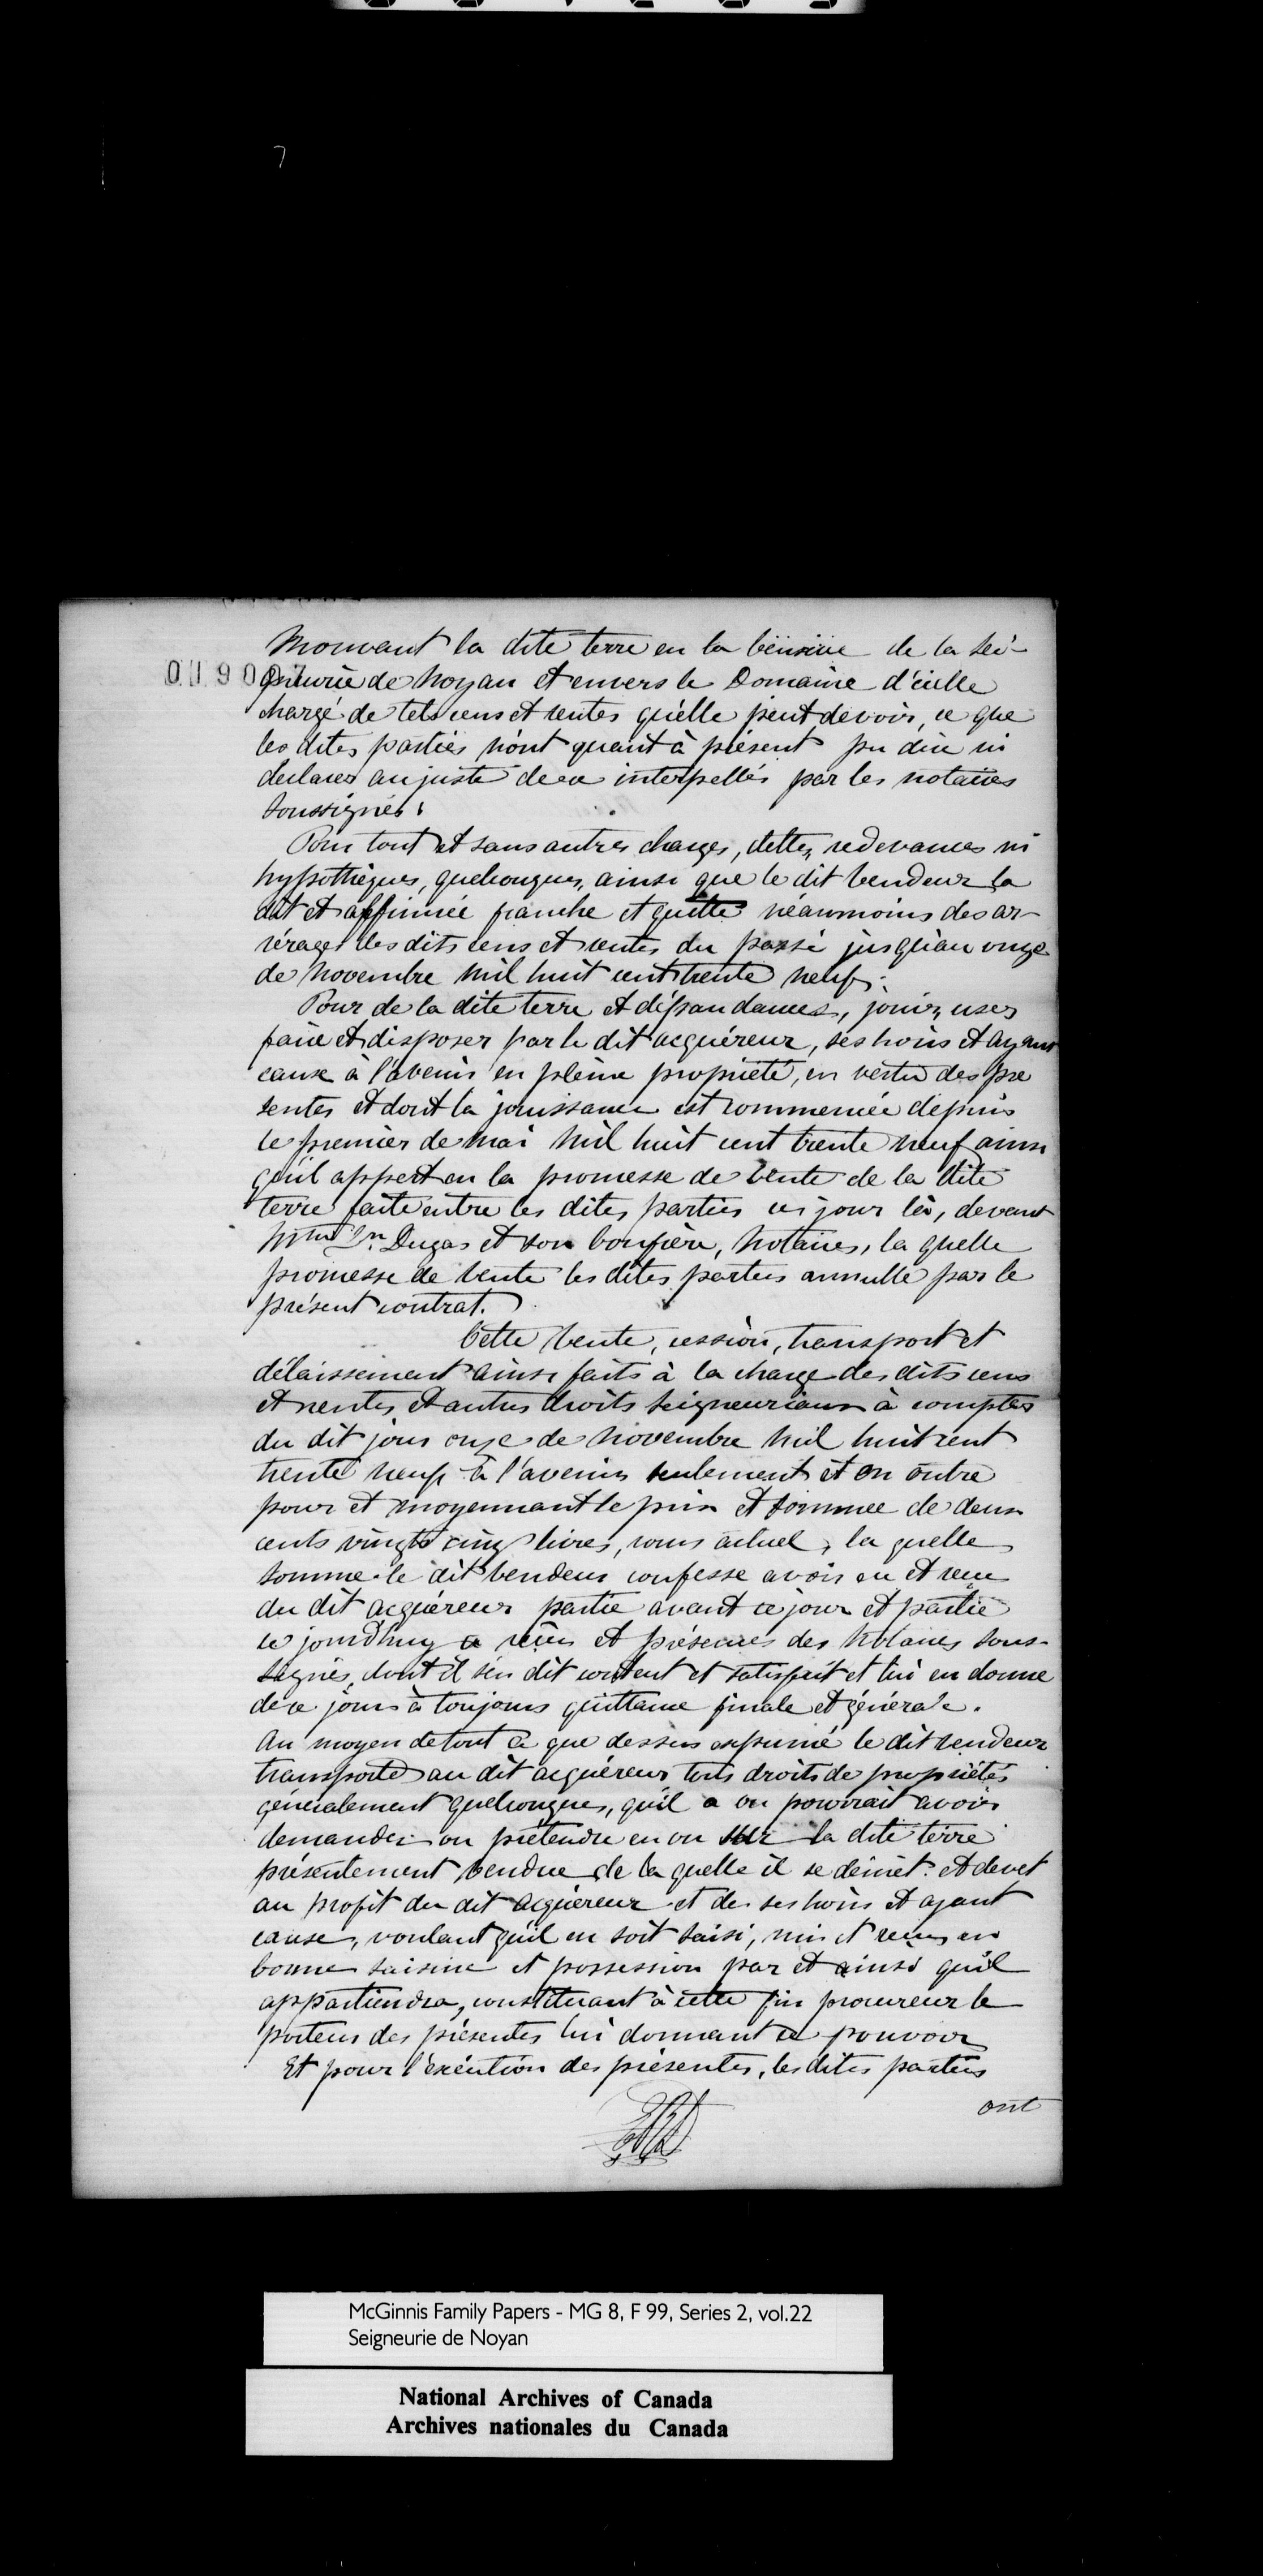 Mouvant la dite terre en la Censive de la Sei-
gneurie de Noyan et envers le Domaine d'icelle
chargé de tels cens et rentes qu'elle peut devoir, ce que
les dites parties n'ont quant à présent pu dire ni
declarer au juste de ce interpellés par les notaires
soussignés.
Pour tout et sans autres charges, dettes, redevances ni
hypothèques, quelconques, ainsi que le dit Vendeur la
dit et affirmée franche et quitte néanmoins des ar-
rérages des dits cens et rentes du passé jusqu'au onze
de Novembre Mil huit cent trente neuf.
Pour de la dite terre et dépendances, jouir, user
faire et disposer par le dit acquéreur, ses hoirs et ayant
cause à l'avenir en pleine propriété, en vertu des pré
sentes et dont la jouissance est commencée depuis
le premier de Mai Mil huit cent trente neuf ainsi
qu'il appert en la promesse de Vente de la dite
terre faite entre les dites parties ces jour là, devant
Mtre Ln. Dugas et son Confrère, Notaires, la quelle
promesse de Vente les dites parties annulle par le
présent contrat.
Cette Vente, cession, transport et
délaissement ainsi faits à la charge des dits cens
et rentes et autres droits Seigneuriaux à compter
du dit jour onze de Novembre Mil huit cent
trente neuf à l'avenir seulement et en outre
pour et moyennant le prix et somme de deux
cents vingt cinq livres, cours actuel, la quelle
somme le dit Vendeur confesse avoir eu et reçu
du dit acquéreur partie avant ce jour et partie
ce jourd'huy a vües et présences des Notaires sous-
signés, dont il s'en dit content et satisfait et lui en donne
de ce jour à toujours quittance finale et générale.
Au moyen de tout ce que dessus exprimé le dit vendeur
transporte au dit acquéreur tous droits de propriétés
généralement quelconques, qu'il a ou pourrait avoir
demander ou prétendre en ou sur la dite terre
présentement Vendue de la quelle il se démet et devet
au profit du dit acquéreur et de ses hoirs et ayant
cause, voulant qu'il en soit saisi, mis et reçu en
bonne saisine et possession par et ainsi qu'il
appartiendra, constituant à cette fin procureur le
porteur des présentes lui donnant ce pouvoir
Et pour l'exécution des présentes, les dites parties
ont
McGinnis Family Papers - MG 8, F 99, Series 2, vol.22
Seigneurie de Noyan
National Archives of Canada
Archives nationales du Canada